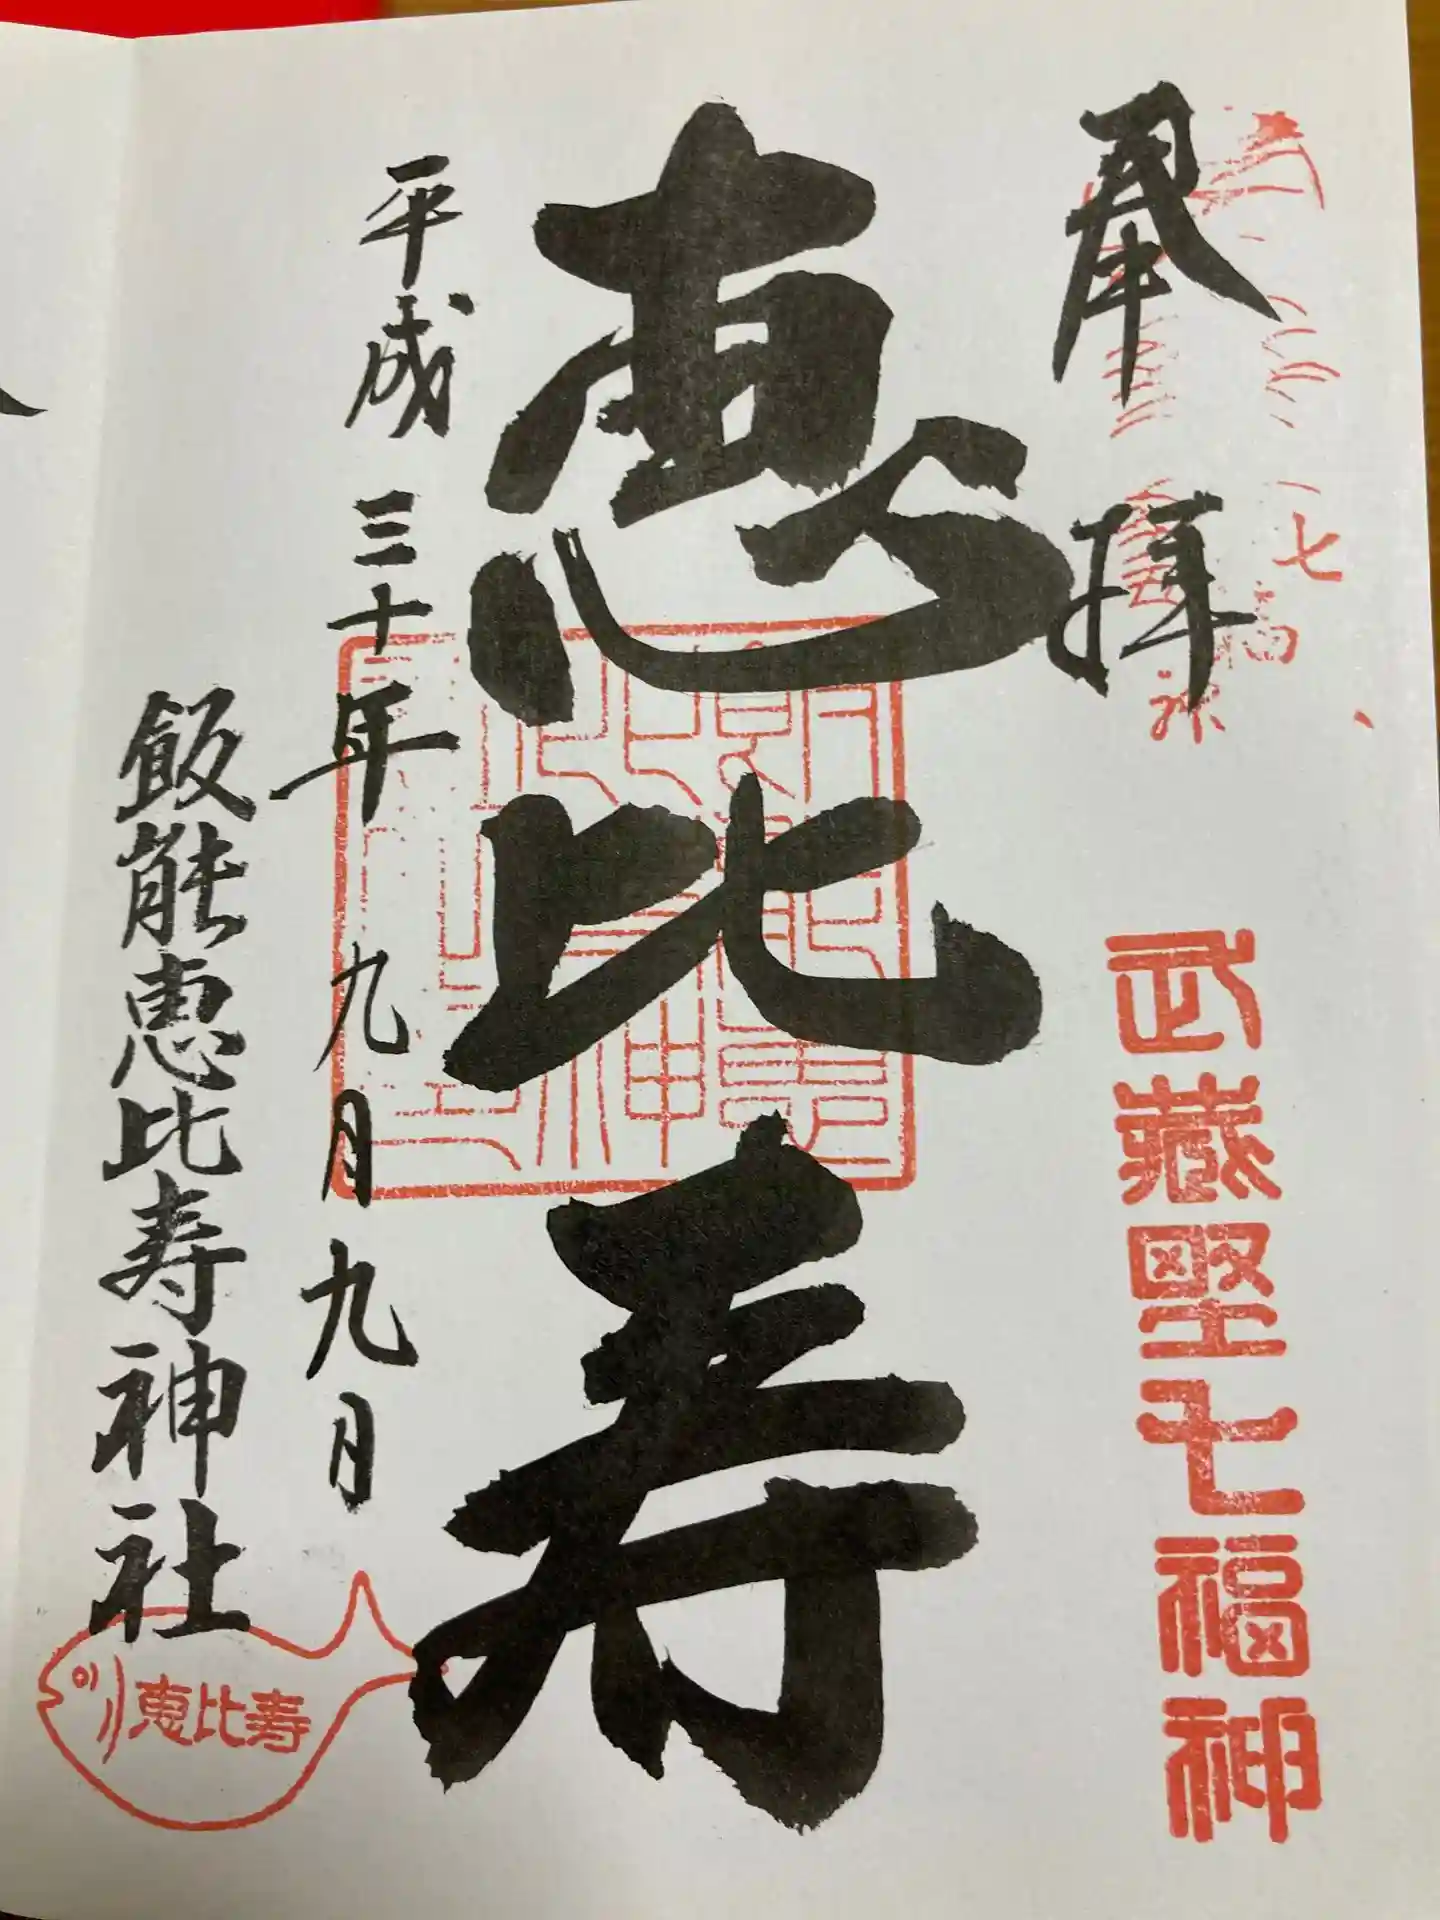 奉拝
武蔵野七福神
恵比寿
平成三十年九月九月
飯能恵比寿神社
恵比寿